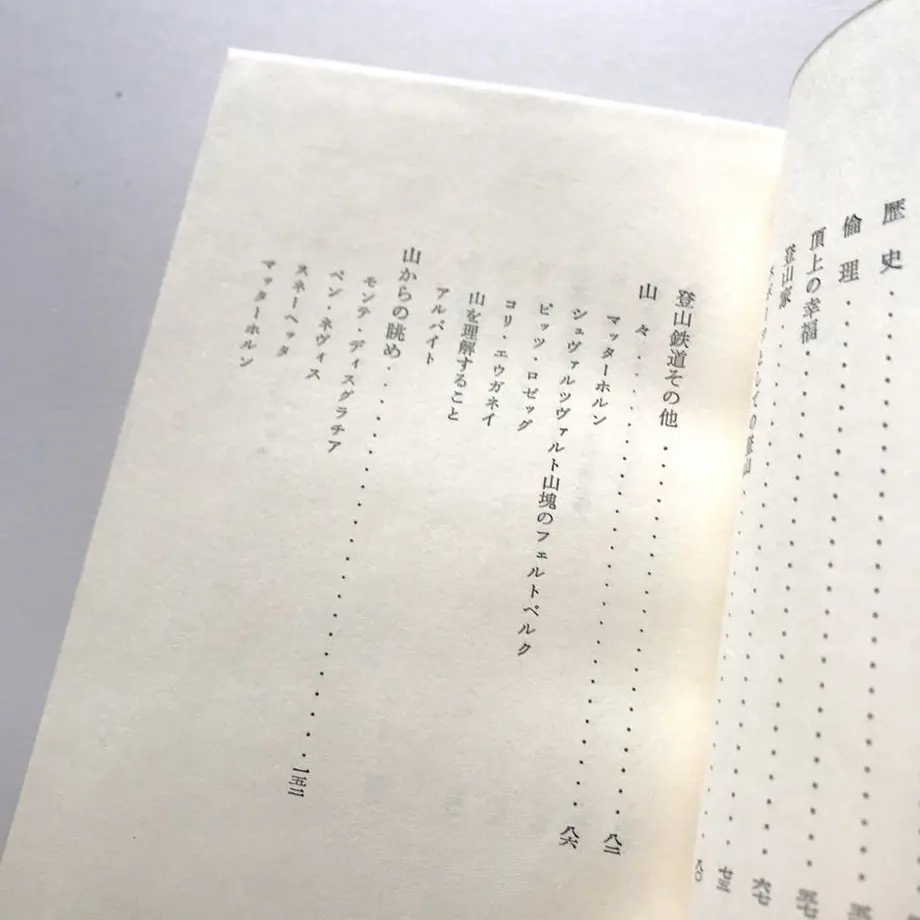 歴史
倫理・・・五七
頂上の幸福・・・六七
登山家・・・七五
スポーツとしての登山・・・八〇
登山鉄道その他・・・八二
山々・・・八六
マッターホルン
シュヴァルツヴァルト山塊のフェルトベルク
ピッツ・ロゼッグ
コリ・エウガネイ
山を理解すること
アルバイト
山からの眺め・・・一五二
モンテ・ディスグラチア
ベン・ネヴィス
スネーヘッタ
マッターホルン